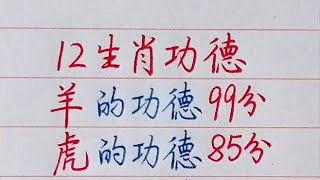 12生肖功德
羊的功德99分
虎的功德85分